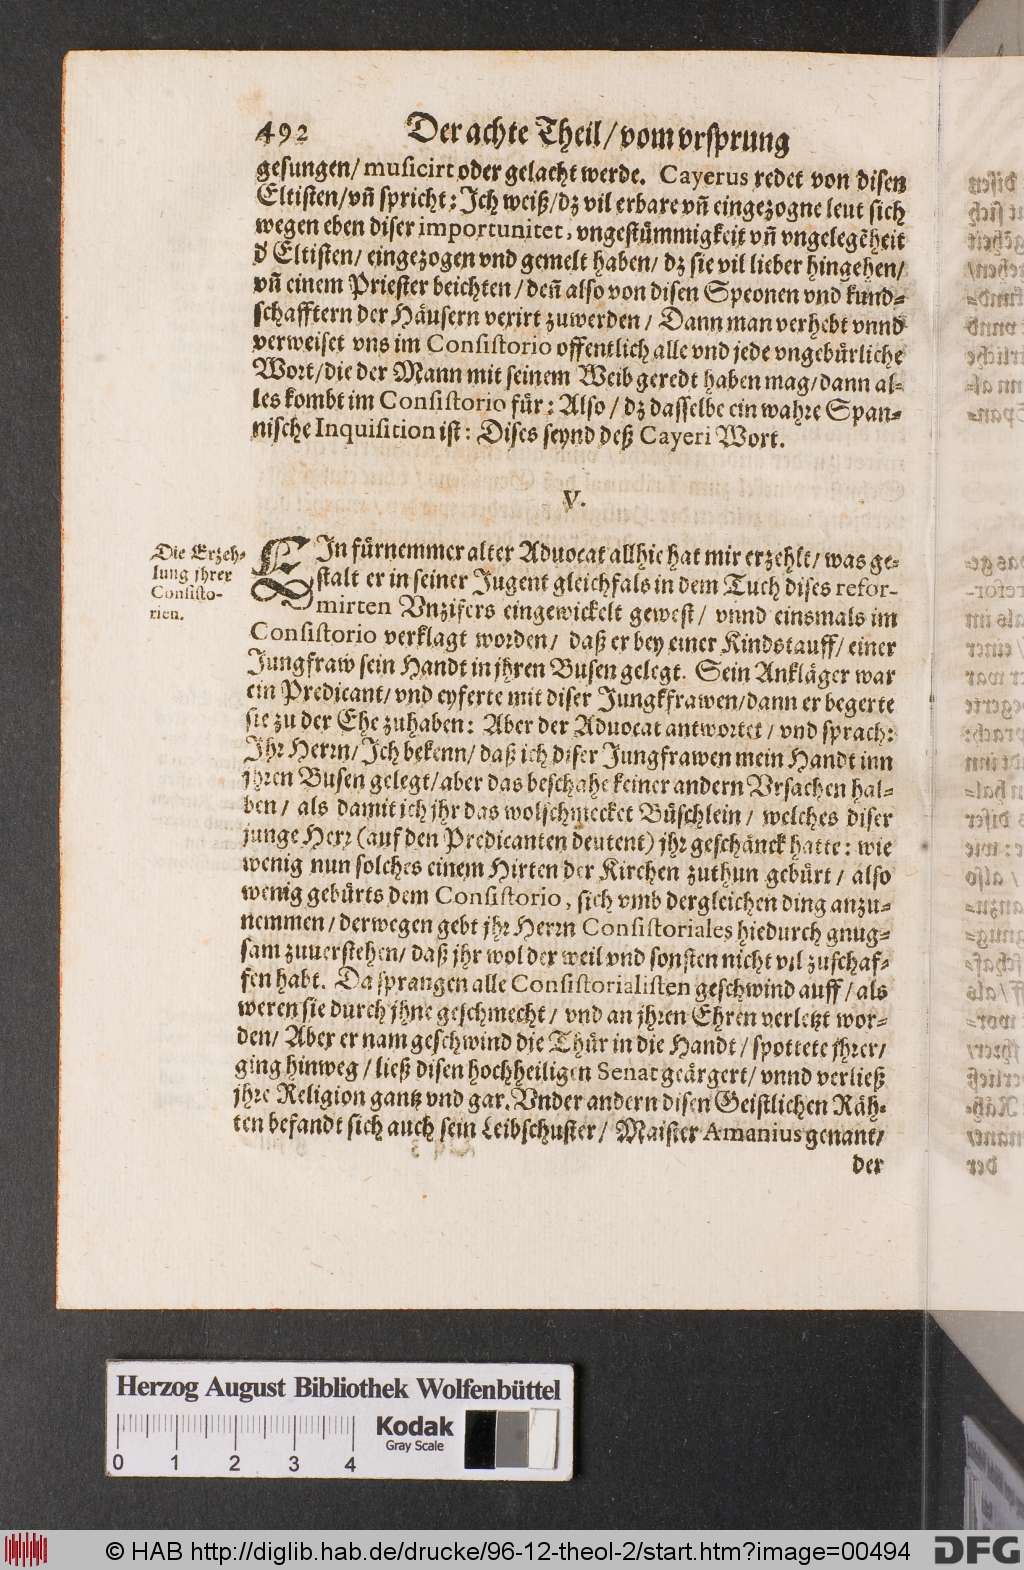 492 Der achte Theil/ vom vrsprung
gesungen/ musicirt oder gelacht werde. Cayerus redet von disen
Eltisten/ vñ spricht: Ich weiß/ dz vil erbare vñ eingezogne leut sich
wegen eben diser importunitet, vngestümmigkeit vñ vngelegēheit
d' Eltisten/ eingezogen vnd gemelt haben/ dz sie vil lieber hingehen/
vñ einem Priester beichten/ deñ also von disen Speonen vnd kund-
schafftern der Häusern vexirt zuwerden/ Dann man verhebt vnnd
verweiset vns im Consistorio offentlich alle vnd jede vngebürliche
Wort/ die der Mann mit seinem Weib geredt haben mag/ dann al-
les kombt im Consistorio für: Also/ dz dasselbe ein wahre Span-
nische Inquisition ist: Dises seynd deß Cayeri Wort.
V.
Die Erzeh-
lung jhrer
Consisto-
rien.
EIn fürnemmer alter Aduocat allhie hat mir erzehlt/ was ge-
stalt er in seiner Jugent gleichfals in dem Tuch dises refor-
mirten Vnzifers eingewickelt gewest/ vnnd einsmals im
Consistorio verklagt worden/ daß er bey einer Kindstauff/ einer
Jungfraw sein Handt in jhren Busen gelegt. Sein Ankläger war
ein Predicant/ vnd eyferte mit diser Jungkfrawen/ dann er begerte
sie zu der Ehe zuhaben: Aber der Aduocat antwortet/ vnd sprach:
Ihr Herrn/ Ich bekenn/ daß ich diser Jungfrawen mein Handt inn
jhren Busen gelegt/ aber das beschahe keiner andern Vrsachen hal-
ben/ als damit ich jhr das wolschmecket Büschlein/ welches diser
junge Herr (auf den Predicanten deutent) jhr geschänckt hatte: wie
wenig nun solches einem Hirten der Kirchen zuthun gebürt/ also
wenig gebürts dem Consistorio, sich vmb dergleichen ding anzu-
nemmen/ derwegen gebt jhr Herrn Consistoriales hiedurch gnug-
sam zuuerstehen/ daß jhr wol der weil vnd sonsten nicht vil zuschaf-
fen habt. Da sprangen alle Consistorialisten geschwind auff/ als
weren sie durch jhne geschmecht/ vnd an jhren Ehren verletzt wor-
den/ Aber er nam geschwind die Thür in die Handt/ spottete jhrer/
ging hinweg/ ließ disen hochheiligen Senat geärgert/ vnnd verließ
jhre Religion gantz vnd gar. Vnder andern disen Geistlichen Räh-
ten befandt sich auch sein Leibschuster/ Maister Amanius genant/
der
Herzog August Bibliothek Wolfenbüttel
0 1 2 3 4
Kodak
Gray Scale
© HAB http://diglib.hab.de/drucke/96-12-theol-2/start.htm?image=00494
DFG